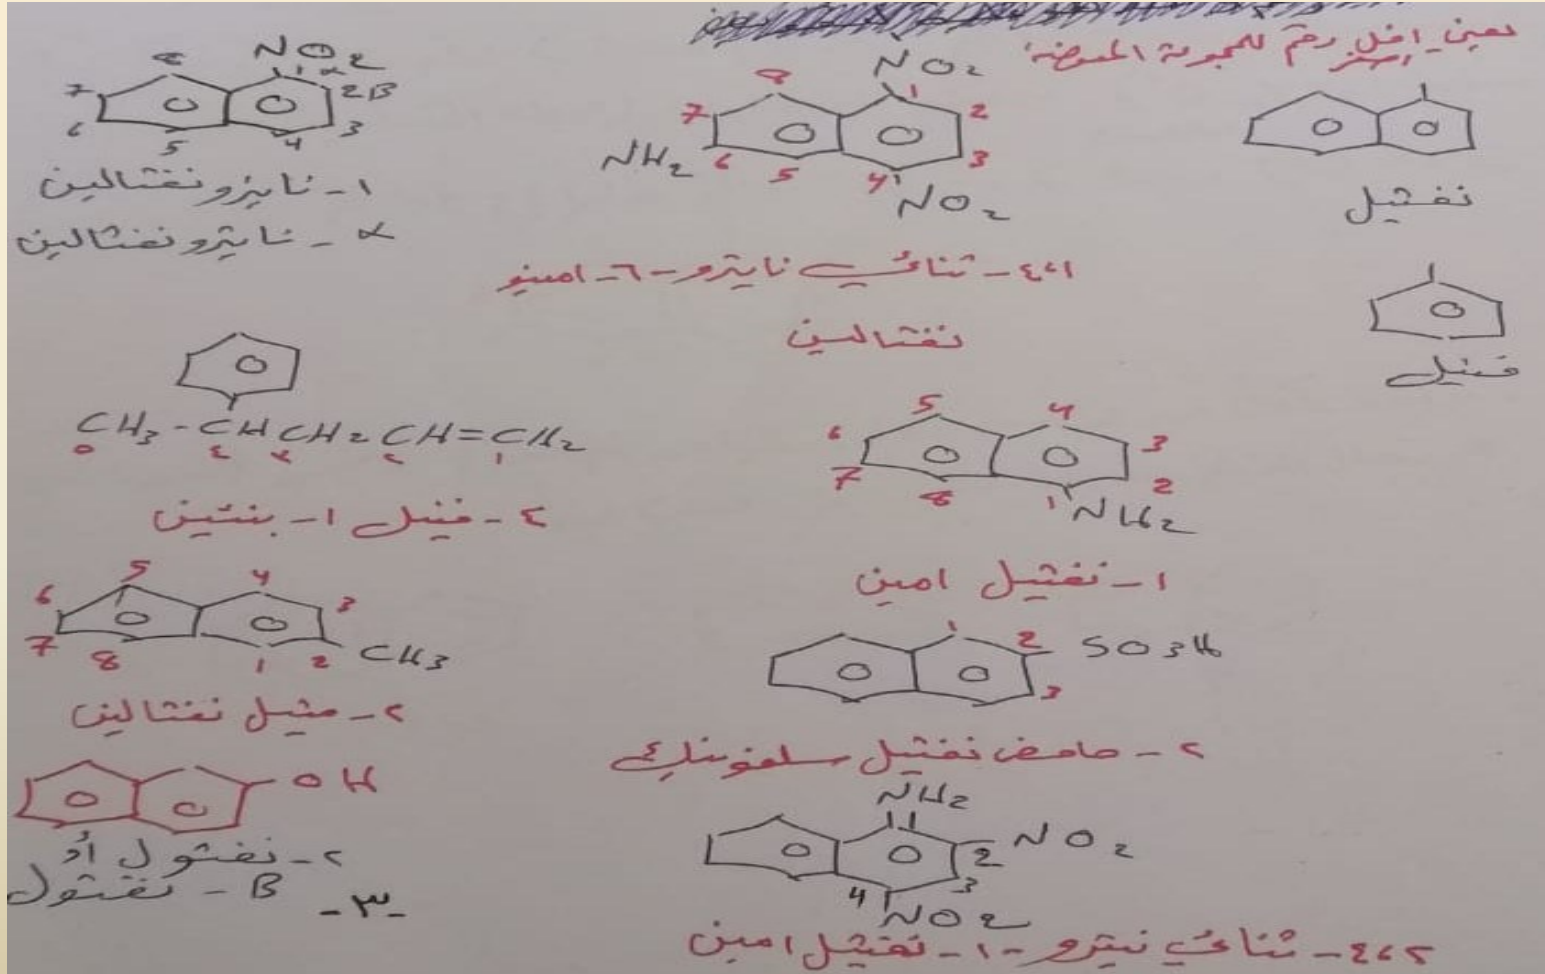 نعين اقل رقم للمجموعة المعوضة
اصغر
نفثيل
فنيل
NO2
1
2
3
4
5
6
7
8
NH2
NO2
٤،١ - ثنائي نايترو - ٦ - امينو
نفثالين
5
4
6
3
7
2
8
1
NH2
١ - نفثيل امين
1
2
SO3H
3
٢ - حامض نفثيل سلفونيك
NH2
NO2
2
3
4
NO2
٤،٢ - ثنائي نيترو - ١ - نفثيل امين
NO2
8
1
α
7
2B
6
3
5
4
١ - نايترو نفثالين
α - نايترو نفثالين
CH3 - CH CH2 CH = CH2
٥ ٤ ٣ ٢ ١
٤ - فنيل ١ - بنتين
5
4
6
3
7
8
1
2
CH3
٢ - مثيل نفثالين
OH
٢ - نفثول أو
B - نفثول
-٣-